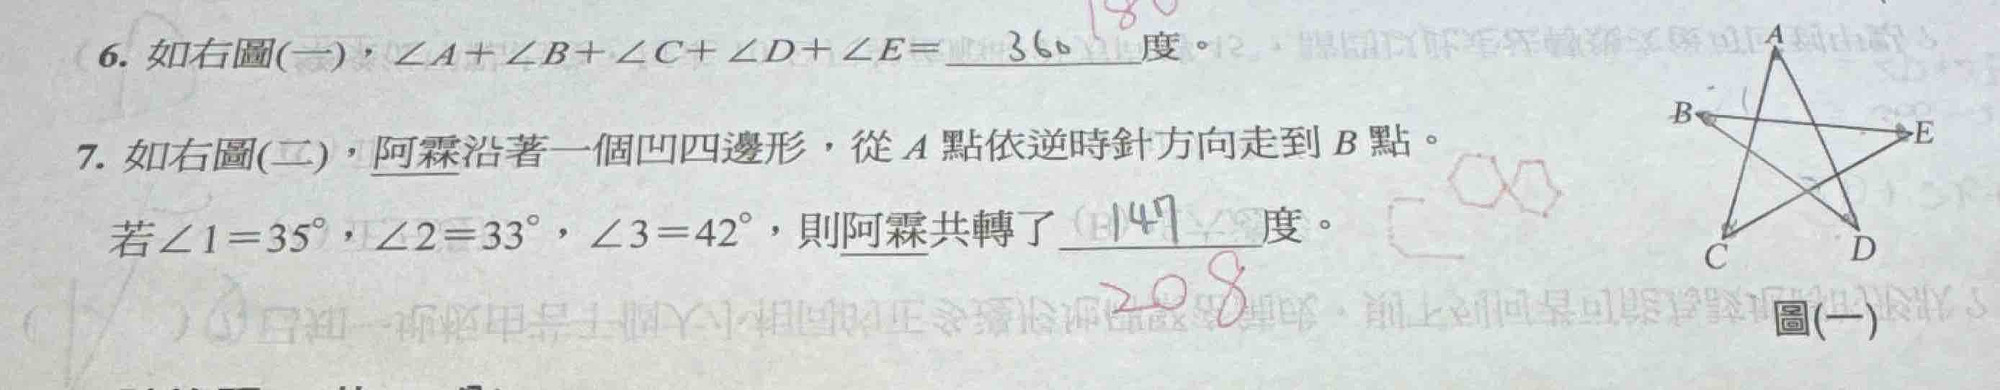 180
6. 如右圖(一)，∠A+∠B+∠C+∠D+∠E=360度。
7. 如右圖(二)，阿霖沿著一個凹四邊形，從 A 點依逆時針方向走到 B 點。
若∠1=35°，∠2=33°，∠3=42°，則阿霖共轉了147度。
208
A
B
E
C
D
圖(一)